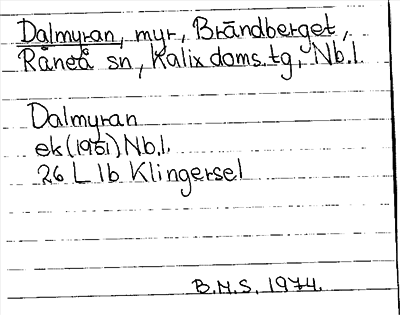 Dalmyran, myr, Brändberget,
Råneå sn, Kalix doms.tg, Nb.l.
Dalmyran
ek (1961) Nb.l.
26 L 1b Klingersel
B.M.S. 1974.